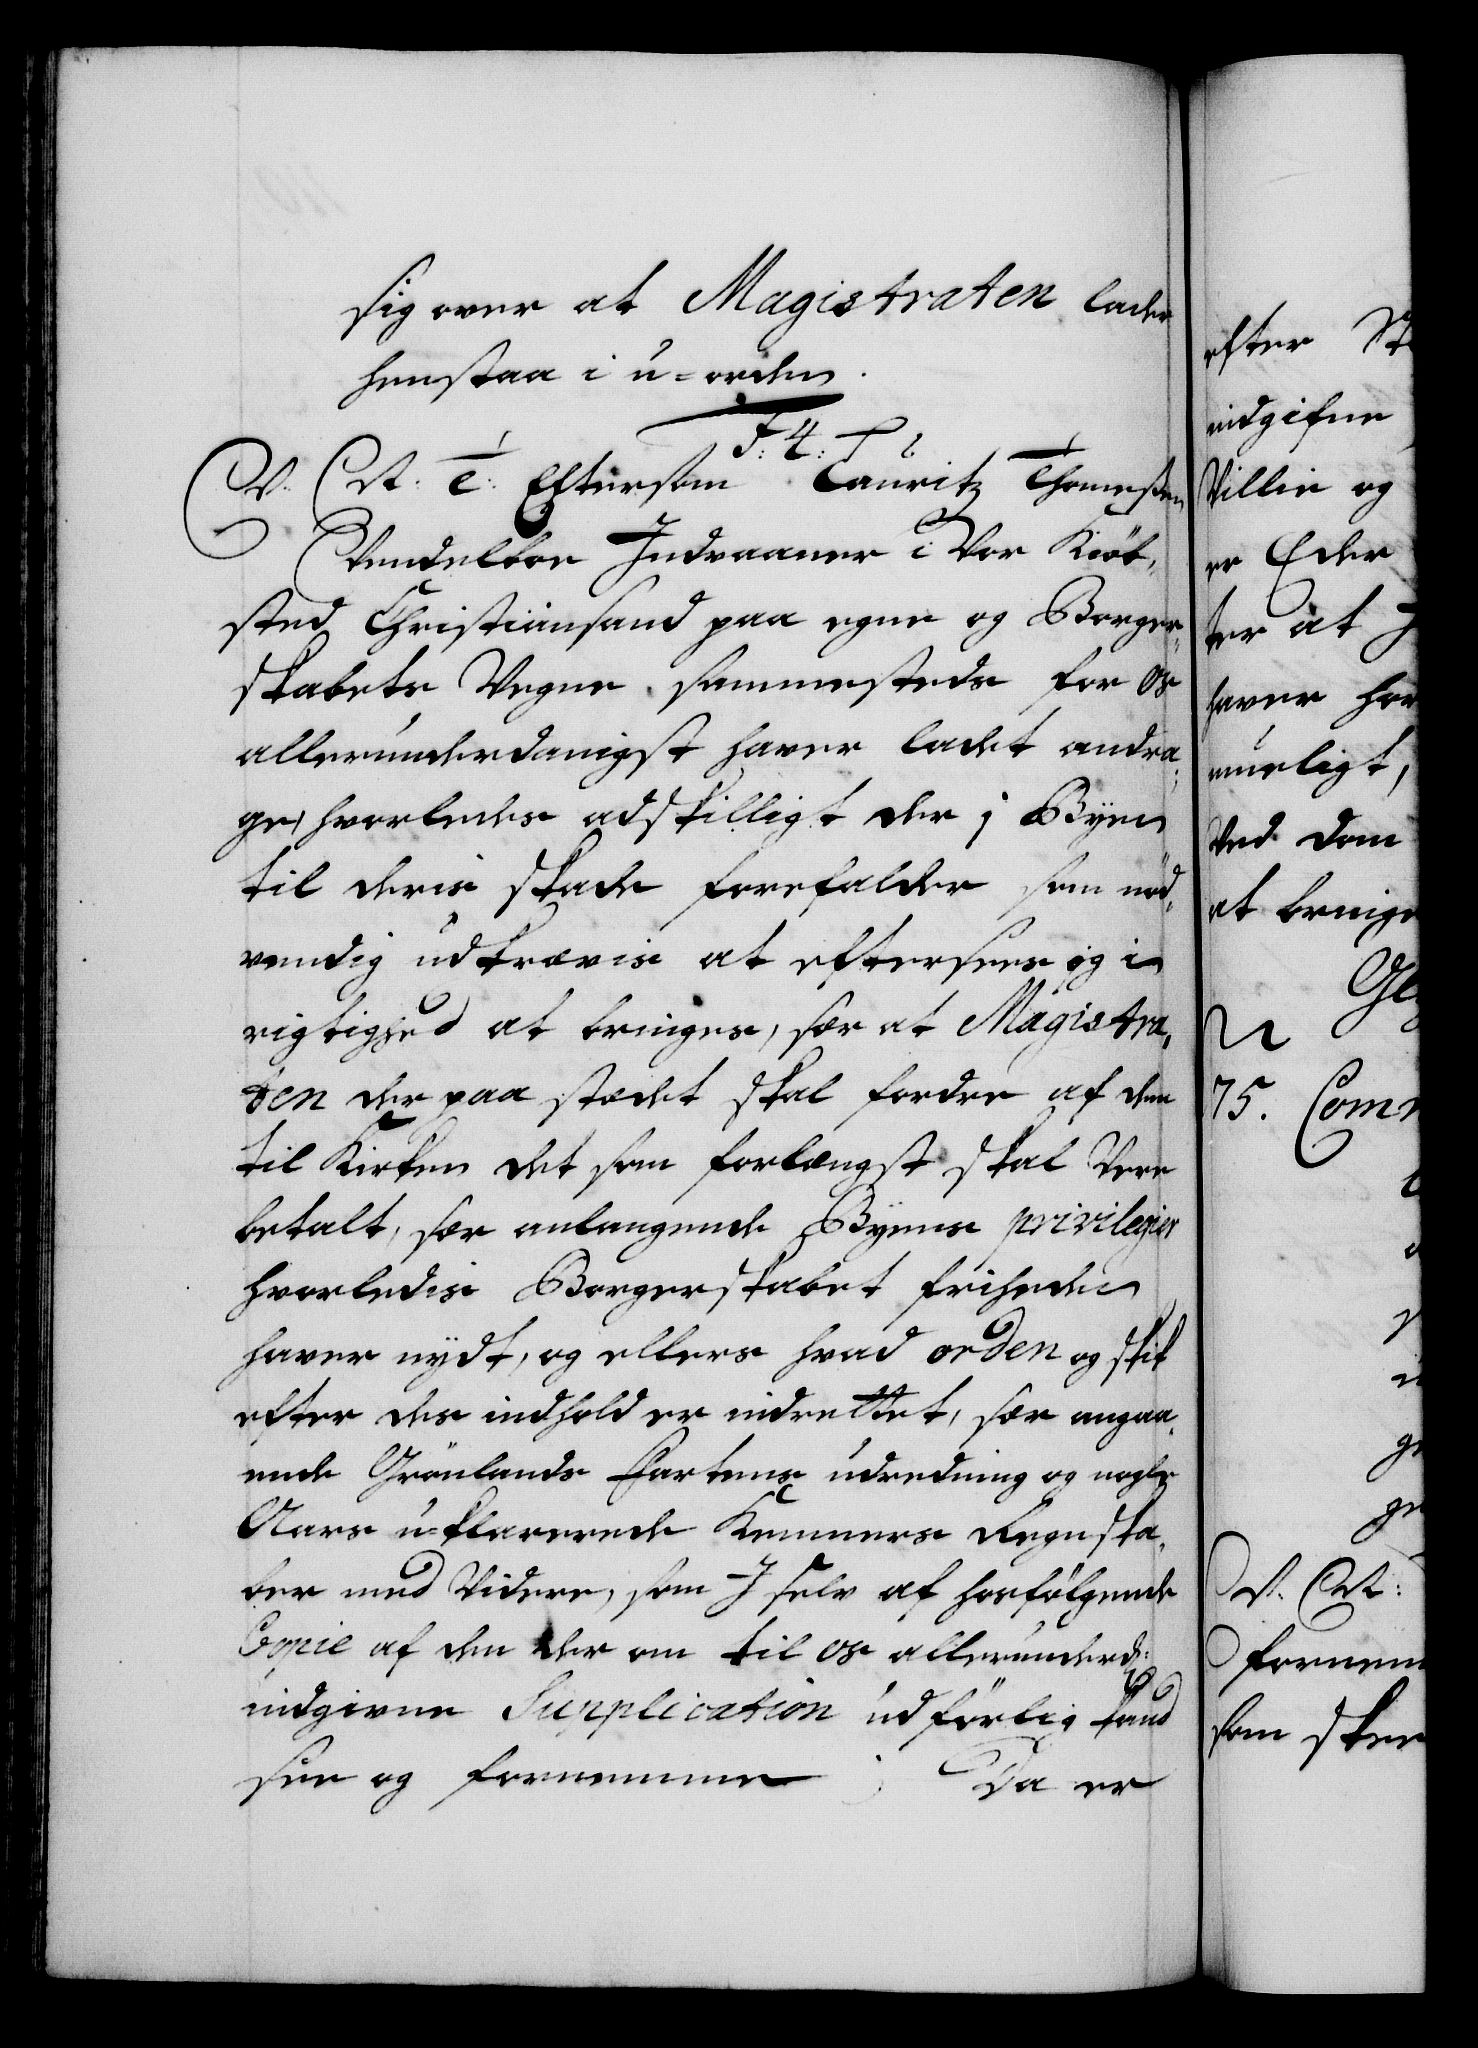 sig over at Magistraten lader
henstaa i u=orden.
F: 4.
V. Et. T: Eftersom Lauritz Thomesen
Vendelboe Indvaaner i Vor Kiöb-
sted Christiansand paa egne og Borger-
skabets Vegne sammesteds for os
allerunderdanigst haver ladet andra-
ge, hvorledes adskilligt der j Byen
til deris skade forefalder som nöd-
vendig udkrævis at eftersees og i
rigtighed at bringes, sær at Magistra-
ten der paa stædet skal fordre af dem
til Kirken det som forlængst skal Vere
betalt, sær anlangende Byens privilegier
hvorledis Borgerskabet friheden
haver nydt, og ellers hvad orden og skik
efter des indhold er indrettet, sær angaa-
ende Grönlands Fartens udredning og nogle
Aars u=klarerede Kemners Regnska-
ber med Videre, som J self af hosfölgende
Copie af den der om til os allerunderd:
indgivne Supplication udförlig kand
see og fornemme; Da er
efter
indgifne
Villie og
er Eder
ter at J
haver
mueligt,
Ved dom
at bringe
75.
V. Et:
fornem
som skeer